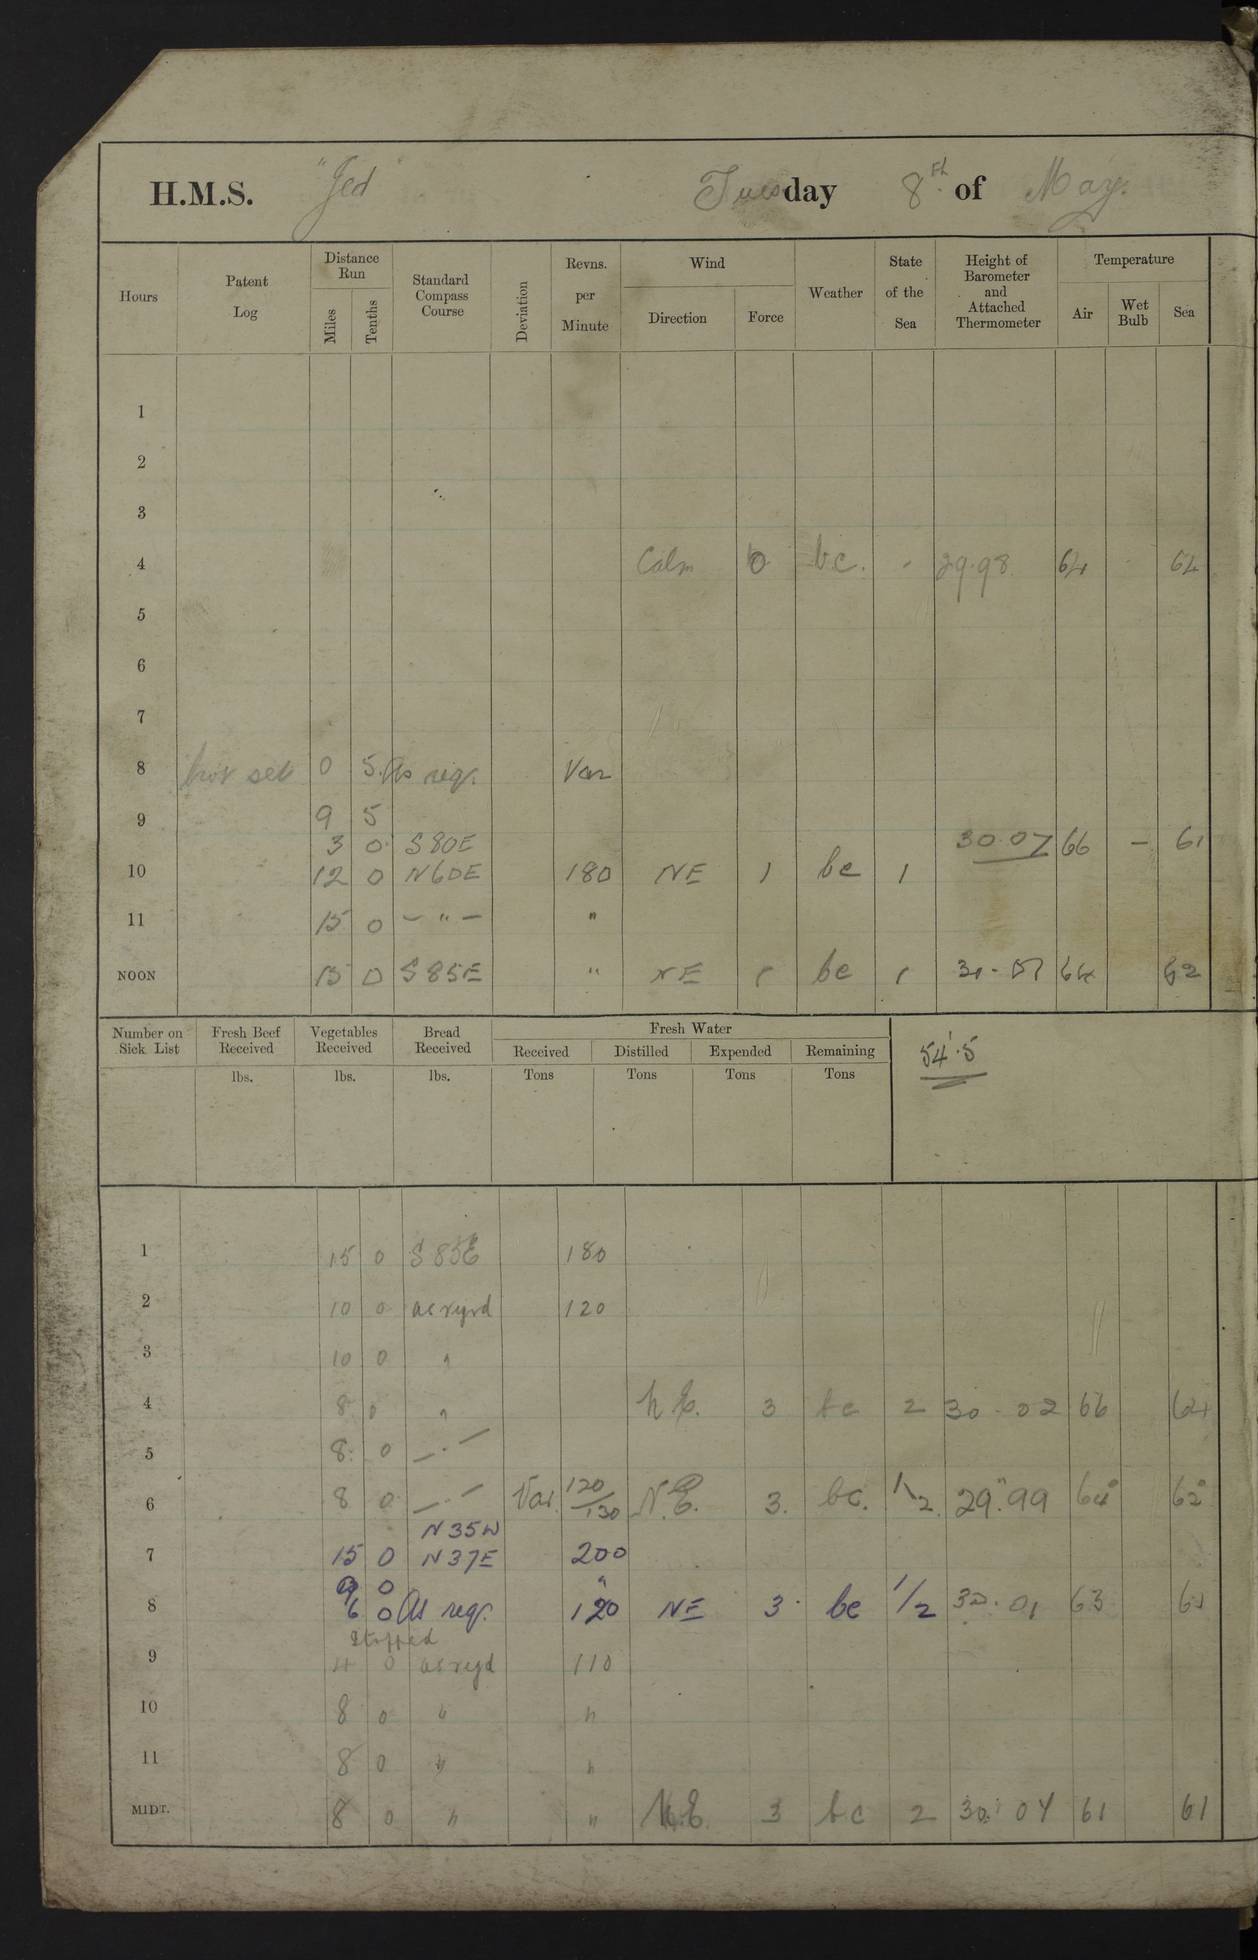 H.M.S. "Jed" Tuesday 8th of May.
Hours Patent Log Distance Run Miles Tenths Standard Compass Course Deviation Revns. per Minute Wind Direction Force Weather State of the Sea Height of Barometer and Attached Thermometer Temperature Air Wet Bulb Sea
1
2
3
4 Calm 0 bc. - 29.98 64 62
5
6
7
8 Not set 0 5 As req. Var
9 9 5
3 0 S80E 30.07 66 - 61
10 12 0 N60E 180 NE 1 bc 1
11 15 0 - " - "
NOON 15 0 S85E " NE 1 bc 1 64 62
Number on Sick List Fresh Beef Received Vegetables Received Bread Received Fresh Water
Received Distilled Expended Remaining
lbs. lbs. lbs. Tons Tons Tons Tons
54'.5
1 15 0 S85E 180
2 10 0 as reqrd 120
3 10 0 "
4 8 0 " N.E. 3 bc 2 30.02 66 64
5 8 0 - . -
6 8 0 - . - Var. 120/130 N.E. 3. bc. 1/2 29.99 64° 62°
N35W
7 15 0 N37E 200
9 0 "
8 6 0 As req. 120 NE 3 bc 1/2 30.01 63 61
Stopped
9 4 0 as reqd 110
10 8 0 " "
11 8 0 " "
MIDT. 8 0 " " N.E. 3 bc 2 30.04 61 61